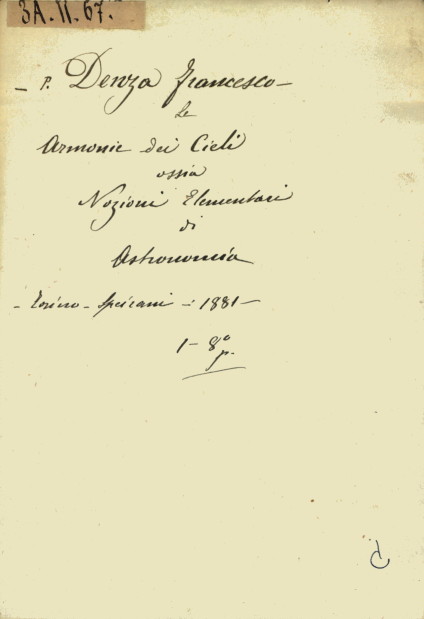 3A.II.67.
– P. Denza Francesco –
Le
Armonie dei Cieli
ossia
Nozioni Elementari
di
Astronomia
– Torino – Speirani – 1881 –
1 – 8º
p.